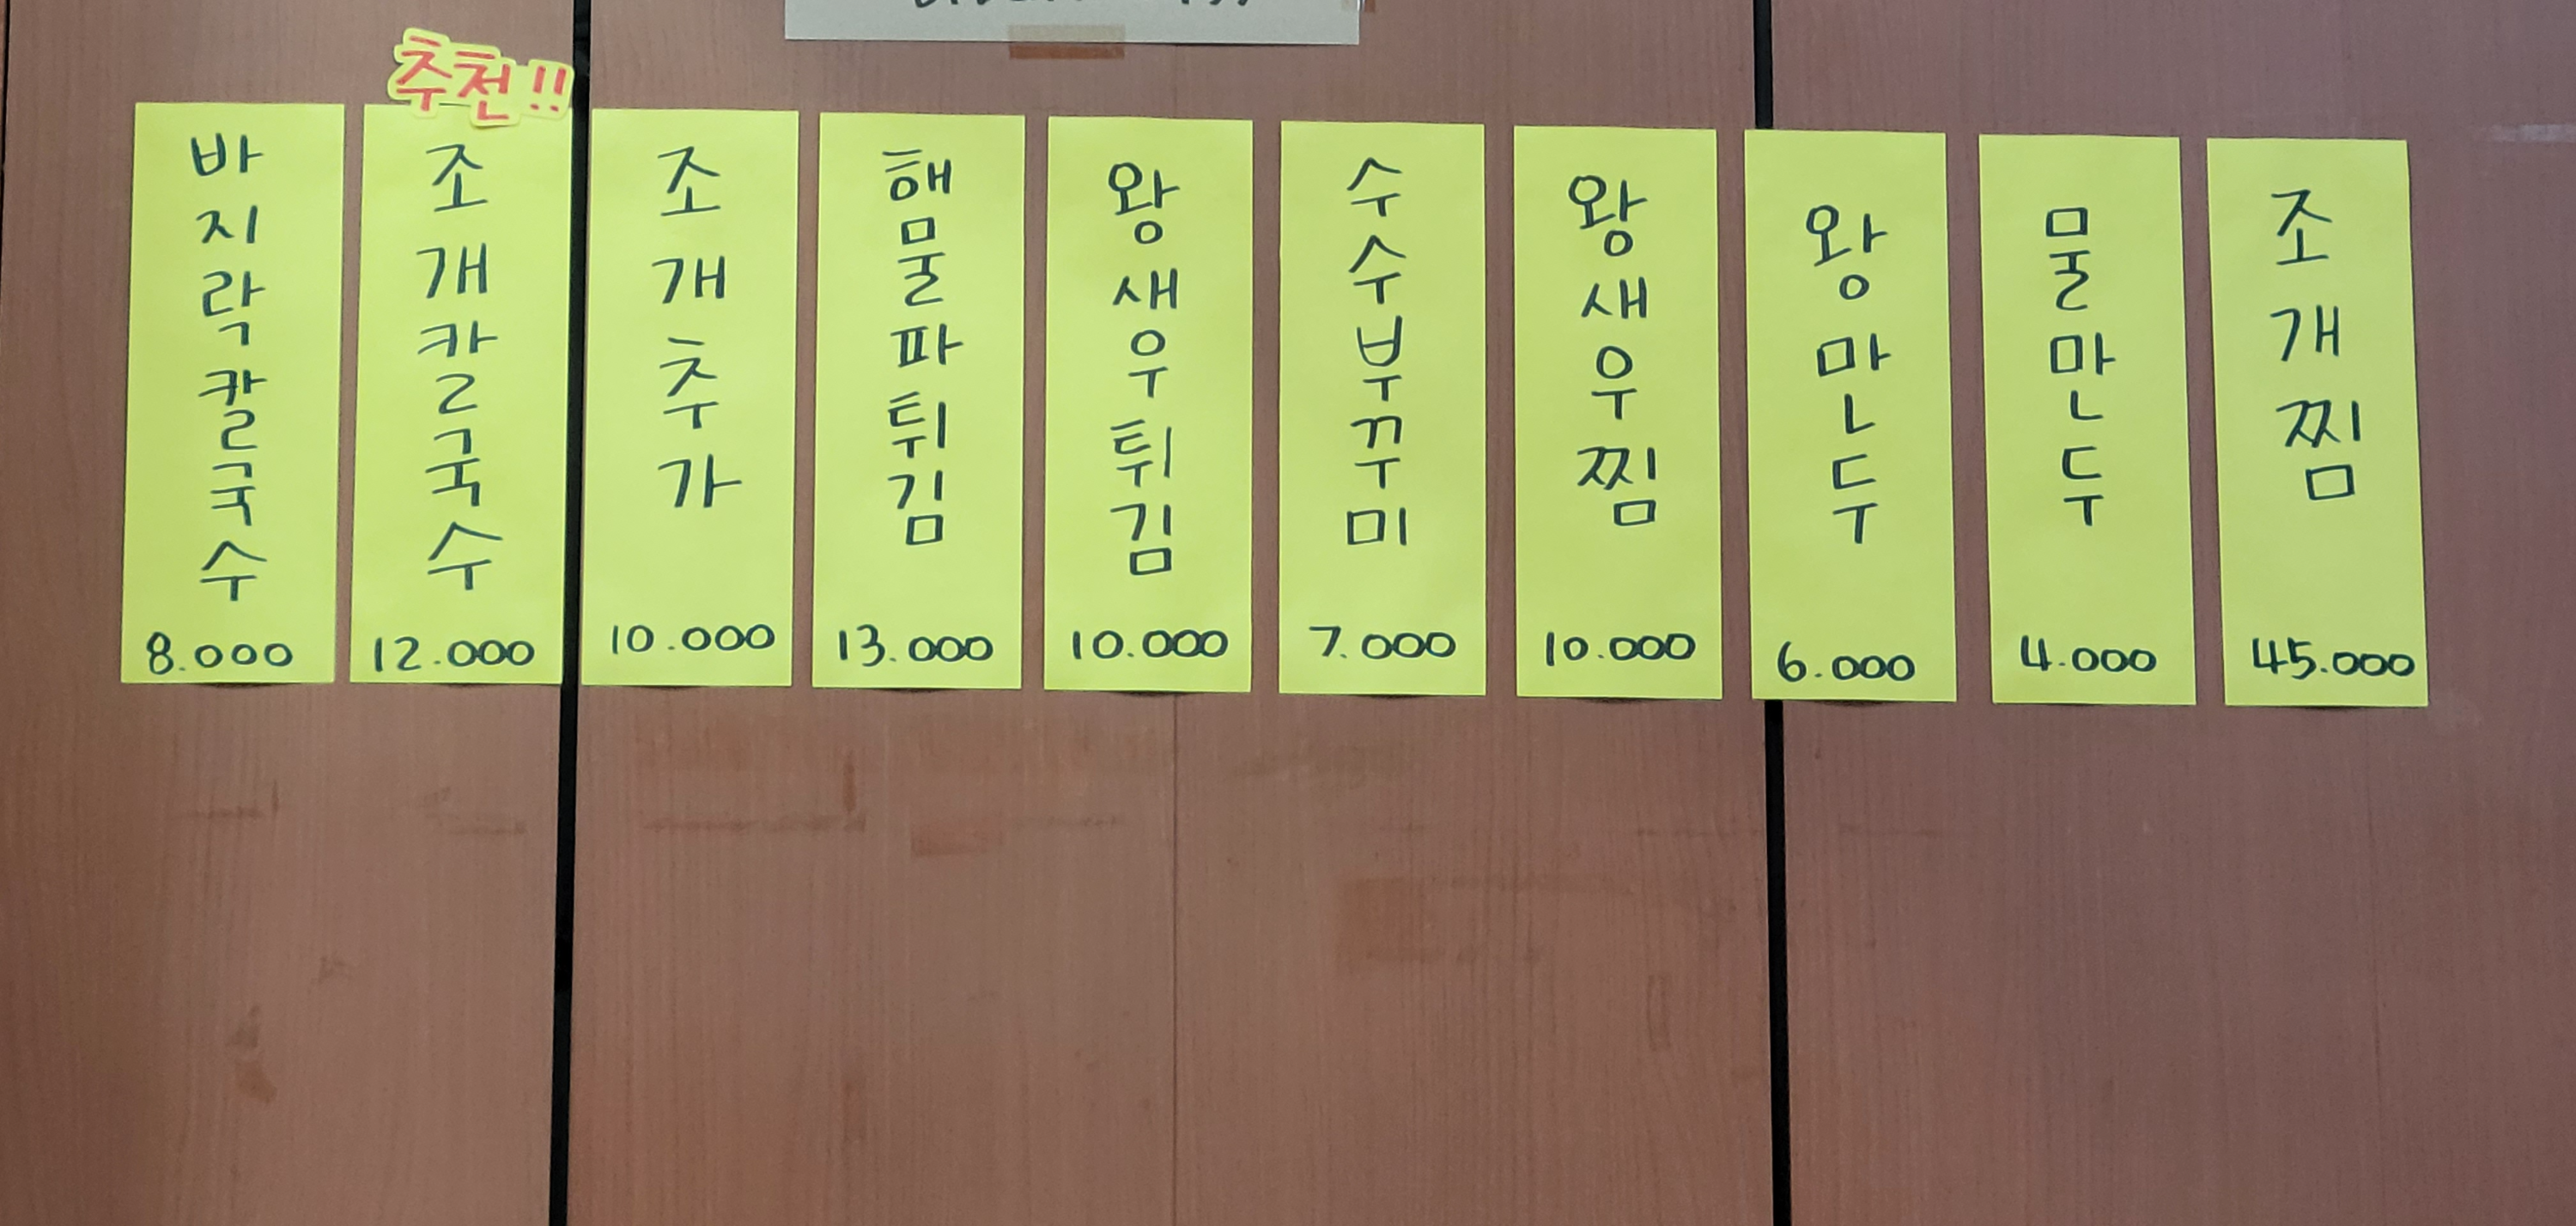 추천!!
바지락칼국수
8.000
조개칼국수
12.000
조개추가
10.000
해물파튀김
13.000
왕새우튀김
10.000
수수부꾸미
7.000
왕새우찜
10.000
왕만두
6.000
물만두
4.000
조개찜
45.000